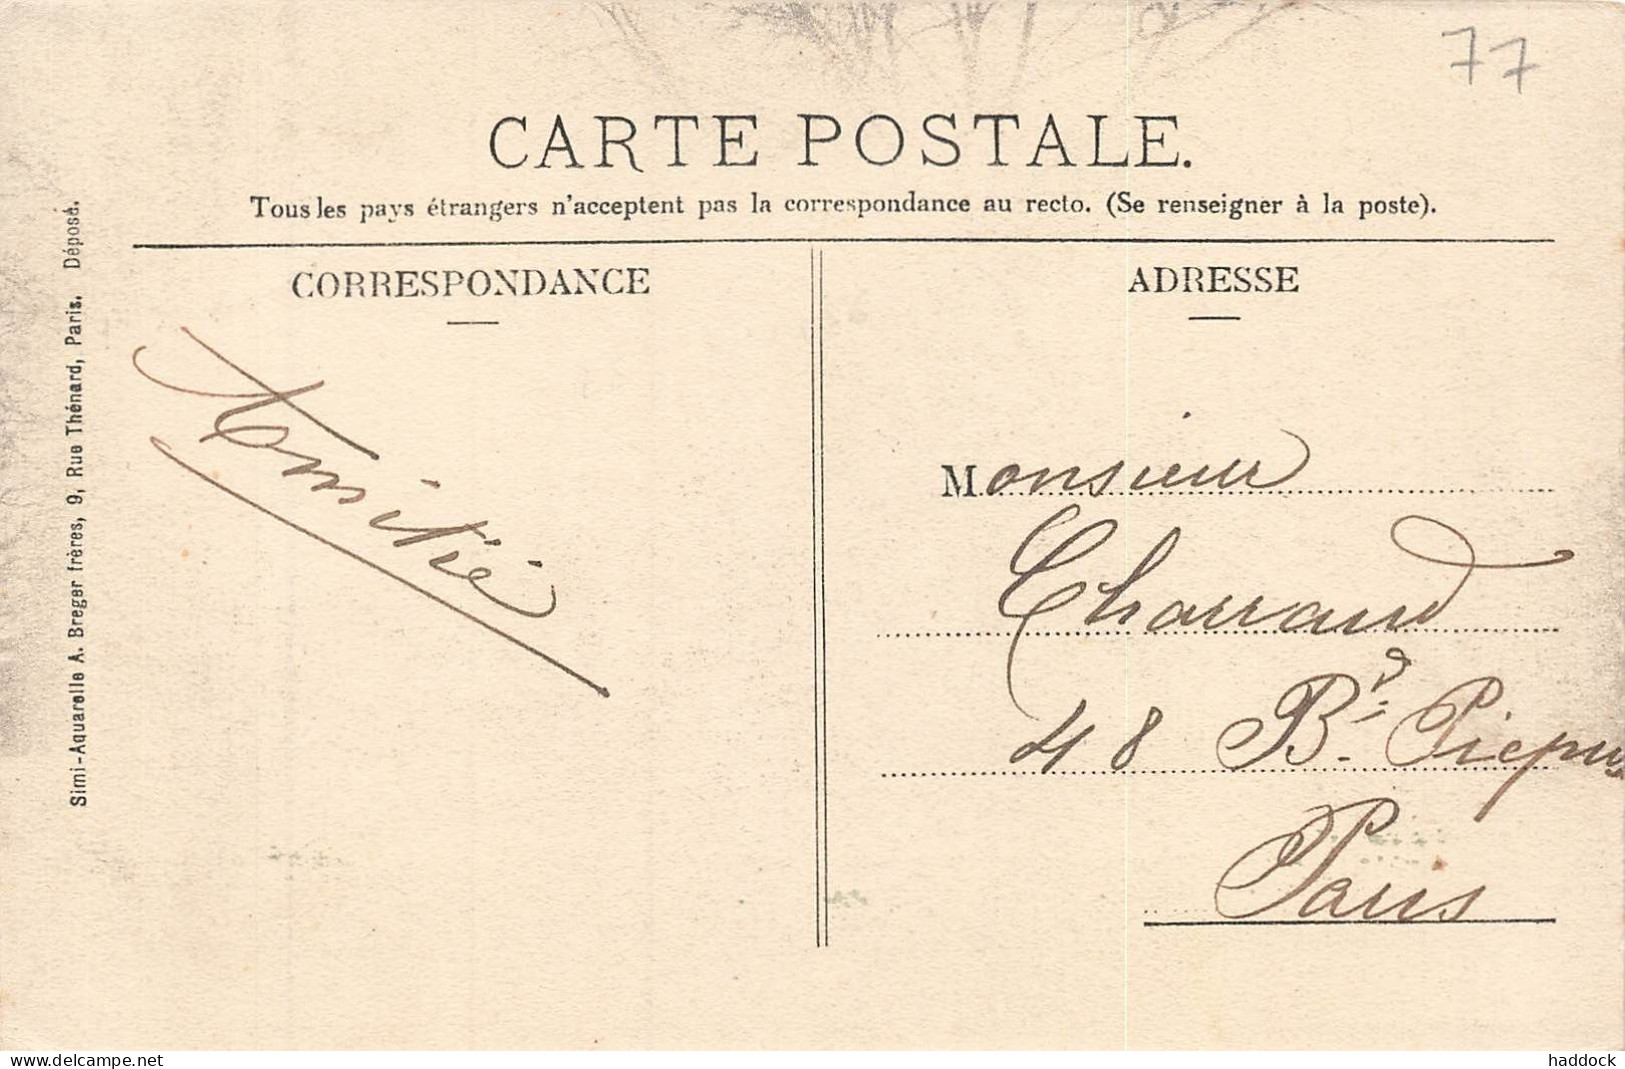 77
CARTE POSTALE.
Tous les pays étrangers n'acceptent pas la correspondance au recto. (Se renseigner à la poste).
Simi-Aquarelle A. Breger frères, 9, Rue Thénard, Paris. Déposé.
CORRESPONDANCE
Amitié
ADRESSE
Monsieur
Charraud
48 Bd. Picpus
Paris
www.delcampe.net
haddock